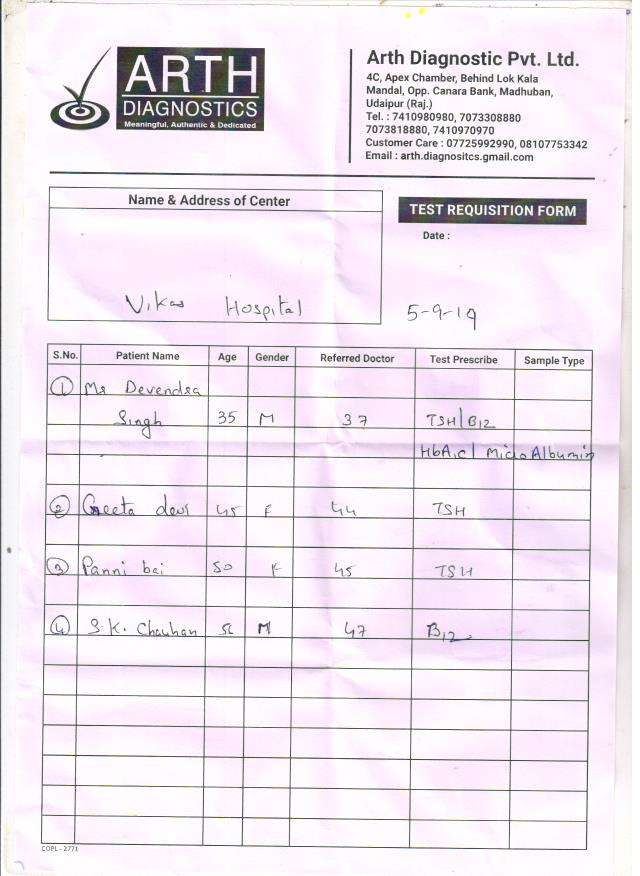 ARTH
DIAGNOSTICS
Meaningful, Authentic & Dedicated
Arth Diagnostic Pvt. Ltd.
4C, Apex Chamber, Behind Lok Kala
Mandal, Opp. Canara Bank, Madhuban,
Udaipur (Raj.)
Tel. : 7410980980, 7073308880
7073818880, 7410970970
Customer Care : 07725992990, 08107753342
Email : arth.diagnositcs.gmail.com
Name & Address of Center
Vikas Hospital
TEST REQUISITION FORM
Date :
5-9-19
S.No. Patient Name Age Gender Referred Doctor Test Prescribe Sample Type
1 Mr Devendra
Singh 35 M 37 TSH/B12
HbA1c/ MicroAlbumin
2 Geeta devi 45 F 44 TSH
3 Panni bai 50 F 45 TSH
4 S.K. Chauhan M 47 B12
COPL - 2771